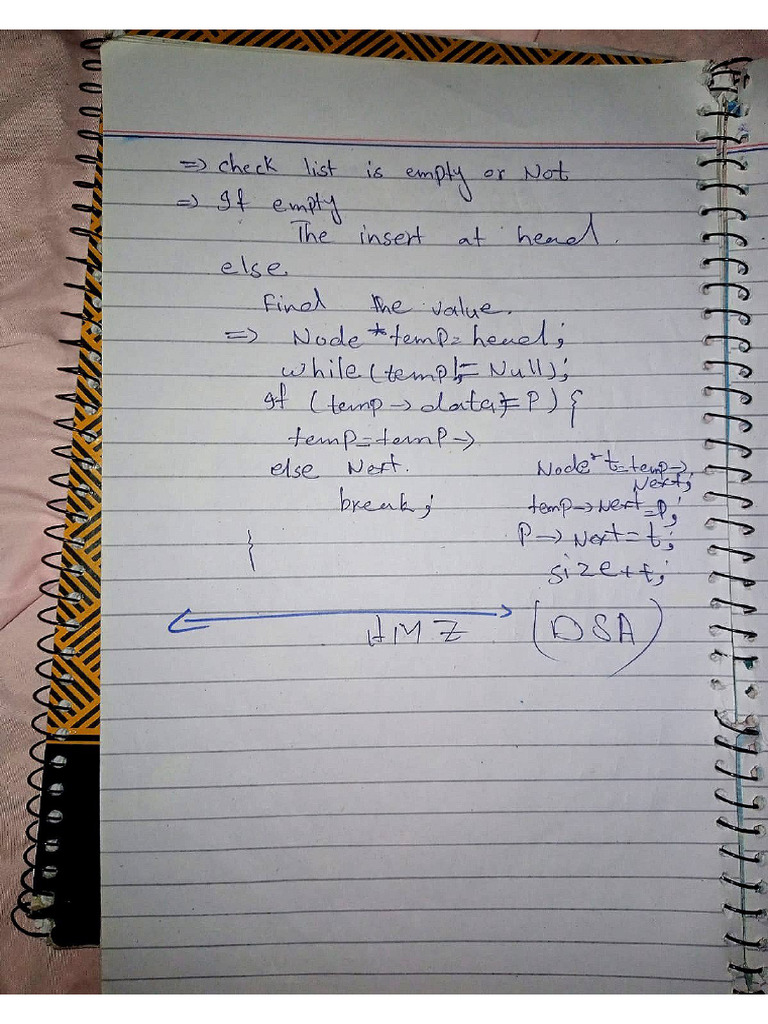 => check list is empty or Not
=> If empty
The insert at head.
else.
Find the value.
=> Node *temp = head;
while (temp != Null);
If (temp -> data != P) {
temp = temp ->
else Next.
break;
}
Node* t = temp ->
Next;
temp -> Next = P;
P -> Next = t;
size++;
HMZ (DSA)